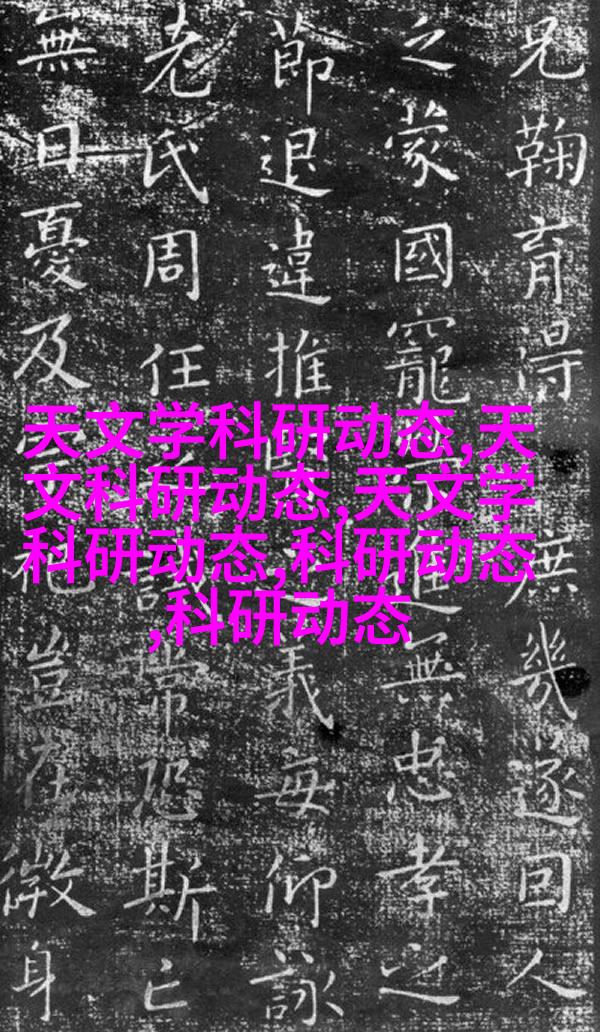 兄鞠育得庶幾遂回人
之蒙國寵進無忠孝之
節退違推義每仰詠
老氏周任誡常恐斯亡
無日憂及豈在微身
天文学科研动态,天
文科研动态,天文学
科研动态,科研动态
,科研动态